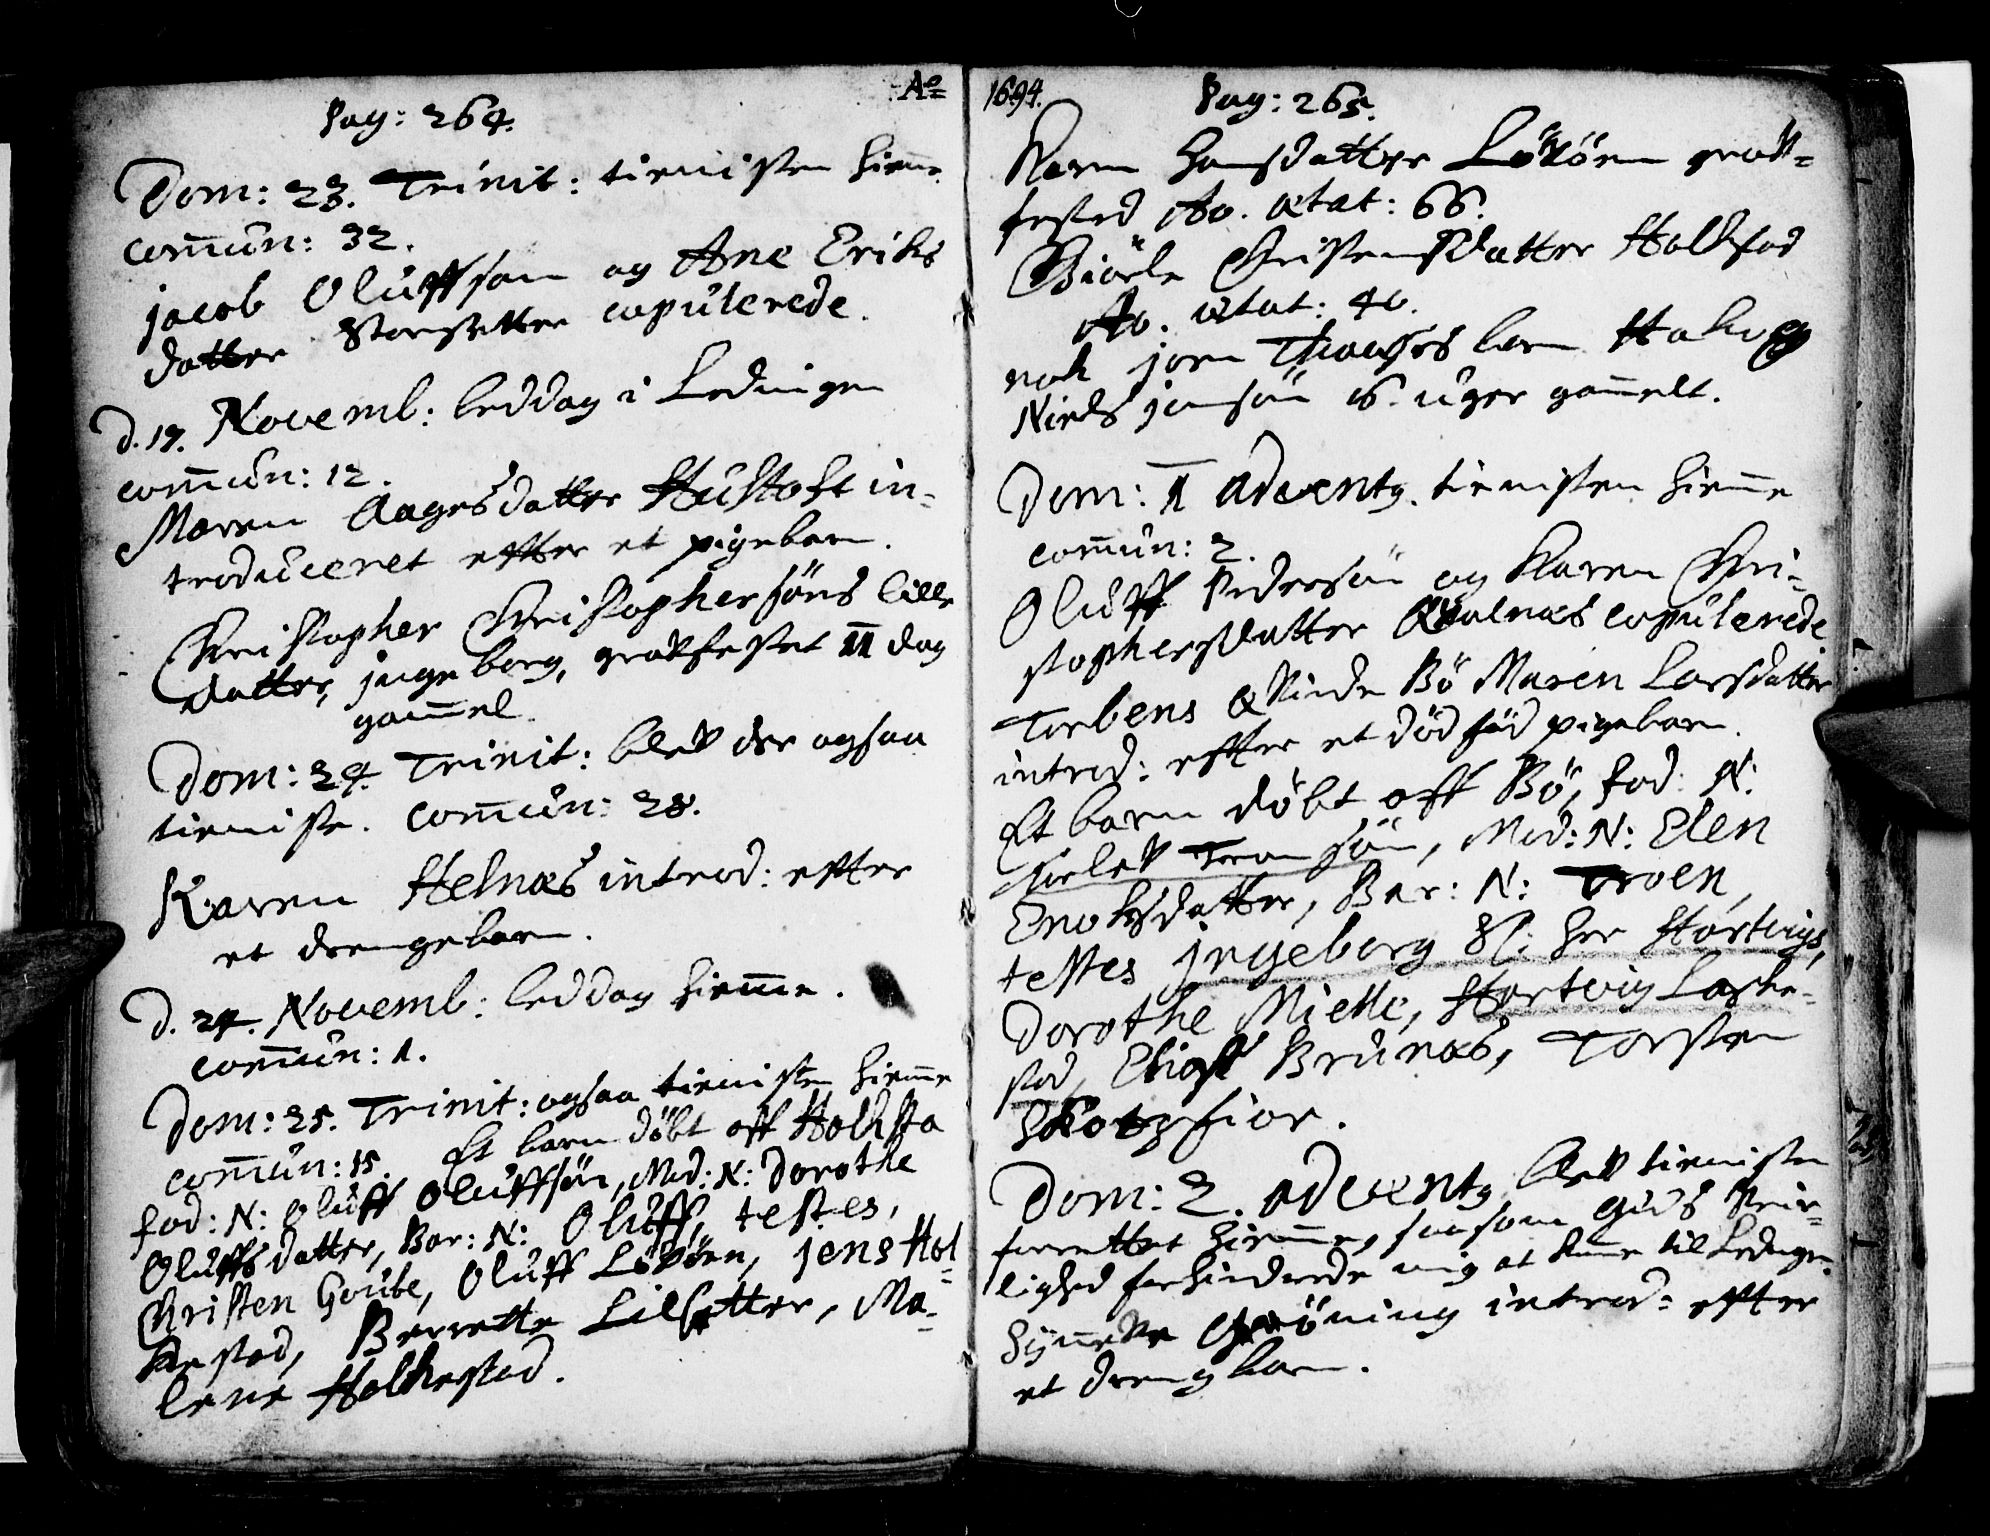 Pag: 264.
Ao
Dom: 23. Trinit: tienisten hieme
comun: 32.
jacob Oluffsøn og Ane Eriks
datter Storsetter copulerede.
d. 17. Novemb: beddag i Lødingen
comun: 12.
Maren Aagesdatter Hustoft in-
troduceret effter et pigebarn.
Christopher Christophersøns lille
datter, jngeborg, gravfestet 11 dag
gammel.
Dom: 24. Trinit: blev der ogsaa
tieniste. comun: 28.
Karen Helnæs introd: effter
et drengebarn.
d. 24. Novemb: beddag hieme.
comun: 1.
Dom: 25. Trinit: ogsaa tienisten hieme
comun: 15. Et barn døbt aff Holksta
fad: N: Oluff Oluffsøn, Mod: N: Dorothe
Oluffsdatter, Bar: N: Oluff, testes,
Christen Goube, Oluff Løvøen, jens Hol-
kestad, Berrette Lilsetter, Ma-
lene Holkestad.
1694.
Pag: 265.
Karen Hansdatter Løvøen grav-
fested Ao. ætat: 66.
Christensdatter Holkstad
Ao. ætat: 40.
nok jon barn
Niels jonsøn 16. uger gammelt.
Dom: 1 Advent9. tienisten hieme
comun: 2.
Oluff Pedersøn og Karen Chri-
stophersdatter Qvalnæs copulerede
Torbens Qvinde Bø Maren Larsdatter
introd: effter et død fød pigebarn.
Et barn døbt aff Bø, fad: N:
søn, Mod: N: Elen
Enoksdatter, Bar: N: Troen,
testes jngeborg Sl: her Hartvigs,
Dorothe Mielle, Hartvig Laske-
stad, Elias Brunæs, Torsten
Skotzfior.
Dom: 2. advent9 blev tienisten
forrettet hieme, saasom Guds Veir-
lighed forhindrede mig at kome til Lødingen.
Grøning introd: effter
et drengbarn.